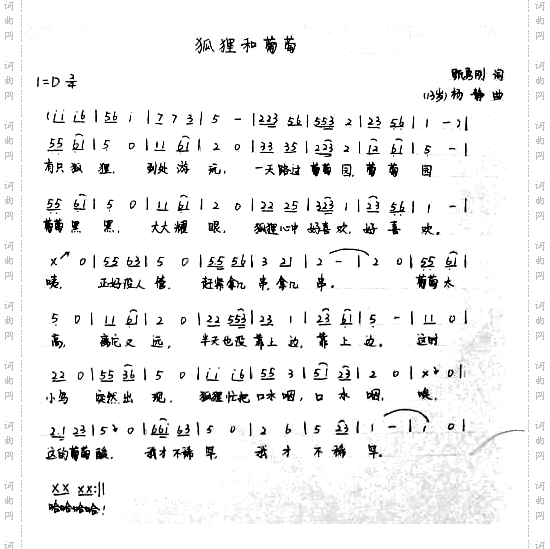 狐狸和葡萄
1=D 2/4
词
(13岁) 杨静 曲
(i i i6 | 56 i | 7 7 3 | 5 - | 223 56 | 553 2 | 23 56 | 1 - ) |
55 61 | 5 0 | 11 61 | 2 0 | 33 35 | 223 2 | 12 61 | 5 - |
有只狐狸, 到处游玩, 一天路过葡萄园, 葡萄园
55 61 | 5 0 | 11 61 | 2 0 | 22 25 | 323 1 | 23 56 | 1 - |
葡萄黑黑, 大大耀眼, 狐狸心中好喜欢, 好喜欢。
x 0 | 55 63 | 5 0 | 55 56 | 3 21 | 2 - | 2 0 | 55 61 |
咦, 正好没人管, 赶紧拿几串, 拿几串。 葡萄太
5 0 | 11 61 | 2 0 | 22 553 | 23 1 | 23 61 | 5 - | 11 0 |
高, 离它又远, 半天也没靠上边, 靠上边。 这时
22 0 | 55 36 | 5 0 | i i i6 | 55 3 | 51 23 | 2 0 | x 0 |
小鸟 突然出现, 狐狸忙把口水咽, 口水咽, 唉,
21 23 | 5 0 | 661 63 | 5 0 | 2 6 | 5 23 | 1 - | 1 0 |
这的葡萄酸, 我才不稀罕, 我才不稀罕。
x x x x :||
哈哈哈哈!
词曲网
词曲网
词曲网
词曲网
词曲网
词曲网
词曲网
词曲网
词曲网
词曲网